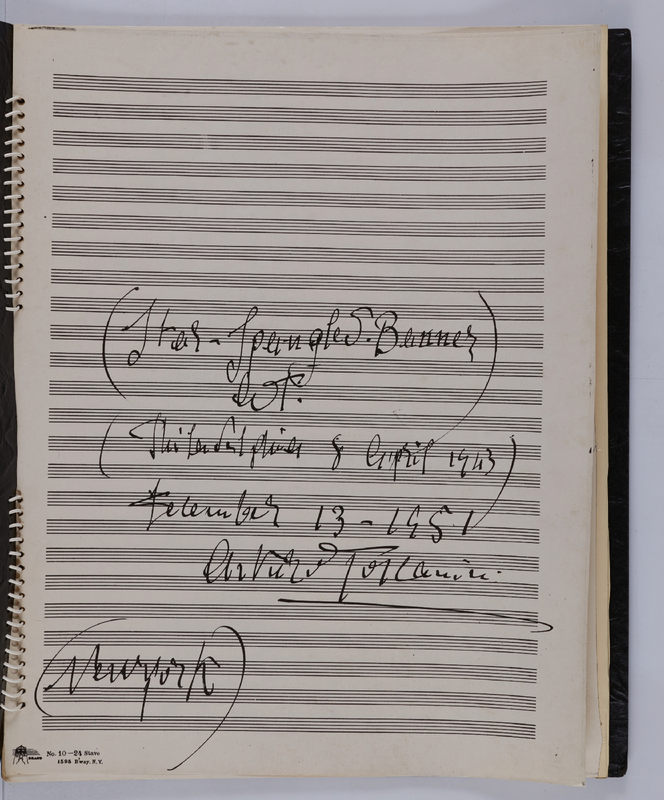 (Star-Spangled-Banner
(Philadelphia 8 April 1943)
December 13-1951
Arturo Toscanini
(Newyork)
No. 10—24 Stave
1595 B'way. N.Y.